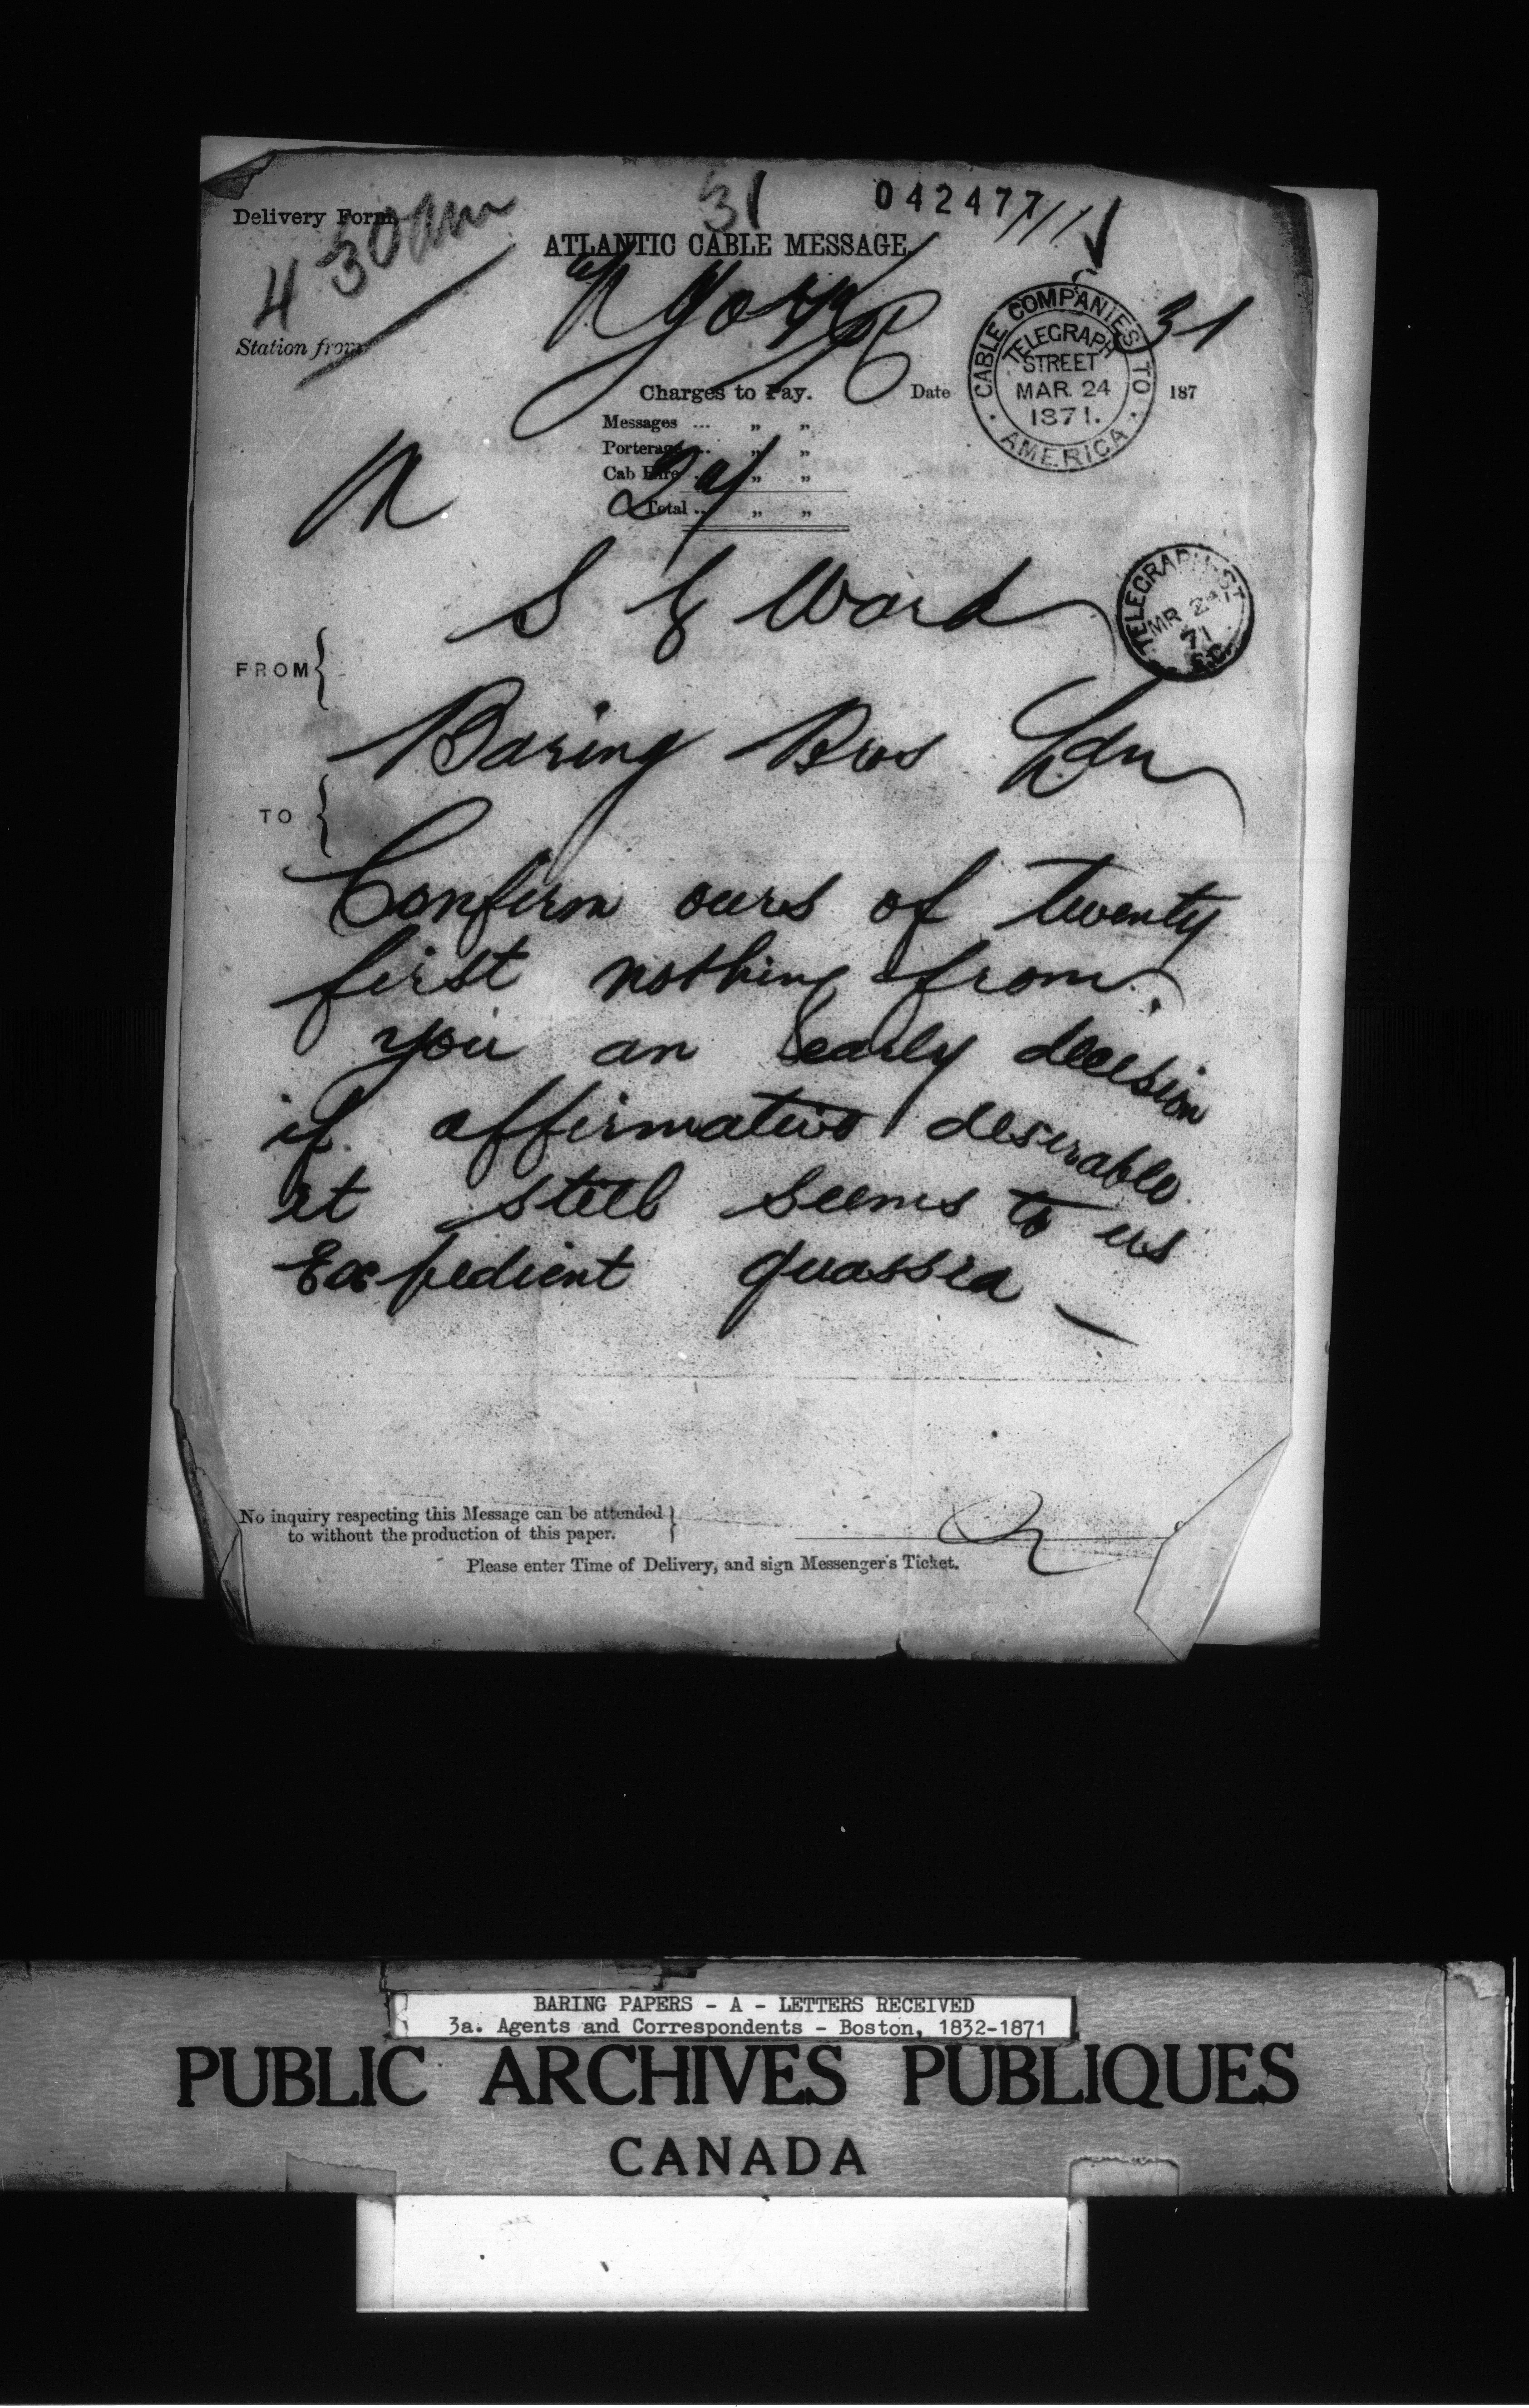 31
042477
Delivery Form
4 30am
ATLANTIC CABLE MESSAGE
N York
31
Station from
CABLE COMPANIES TO AMERICA
TELEGRAPH
STREET
MAR. 24
1871.
Charges to Pay.
Date
187
Messages ... „ „
Porterage ... „ „
Cab Hire ... „ „
Total ... „ „
N
24
S G Ward
TELEGRAPH ST
MR 24
71
FROM {
Baring Bros Ldn
TO {
Confirm ours of twenty
first nothing from
you an early decision
if affirmative desirable
it still seems to us
Expedient quassia —
No inquiry respecting this Message can be attended }
to without the production of this paper.
Please enter Time of Delivery, and sign Messenger's Ticket.
BARING PAPERS - A - LETTERS RECEIVED
3a. Agents and Correspondents - Boston, 1832-1871
PUBLIC ARCHIVES PUBLIQUES
CANADA